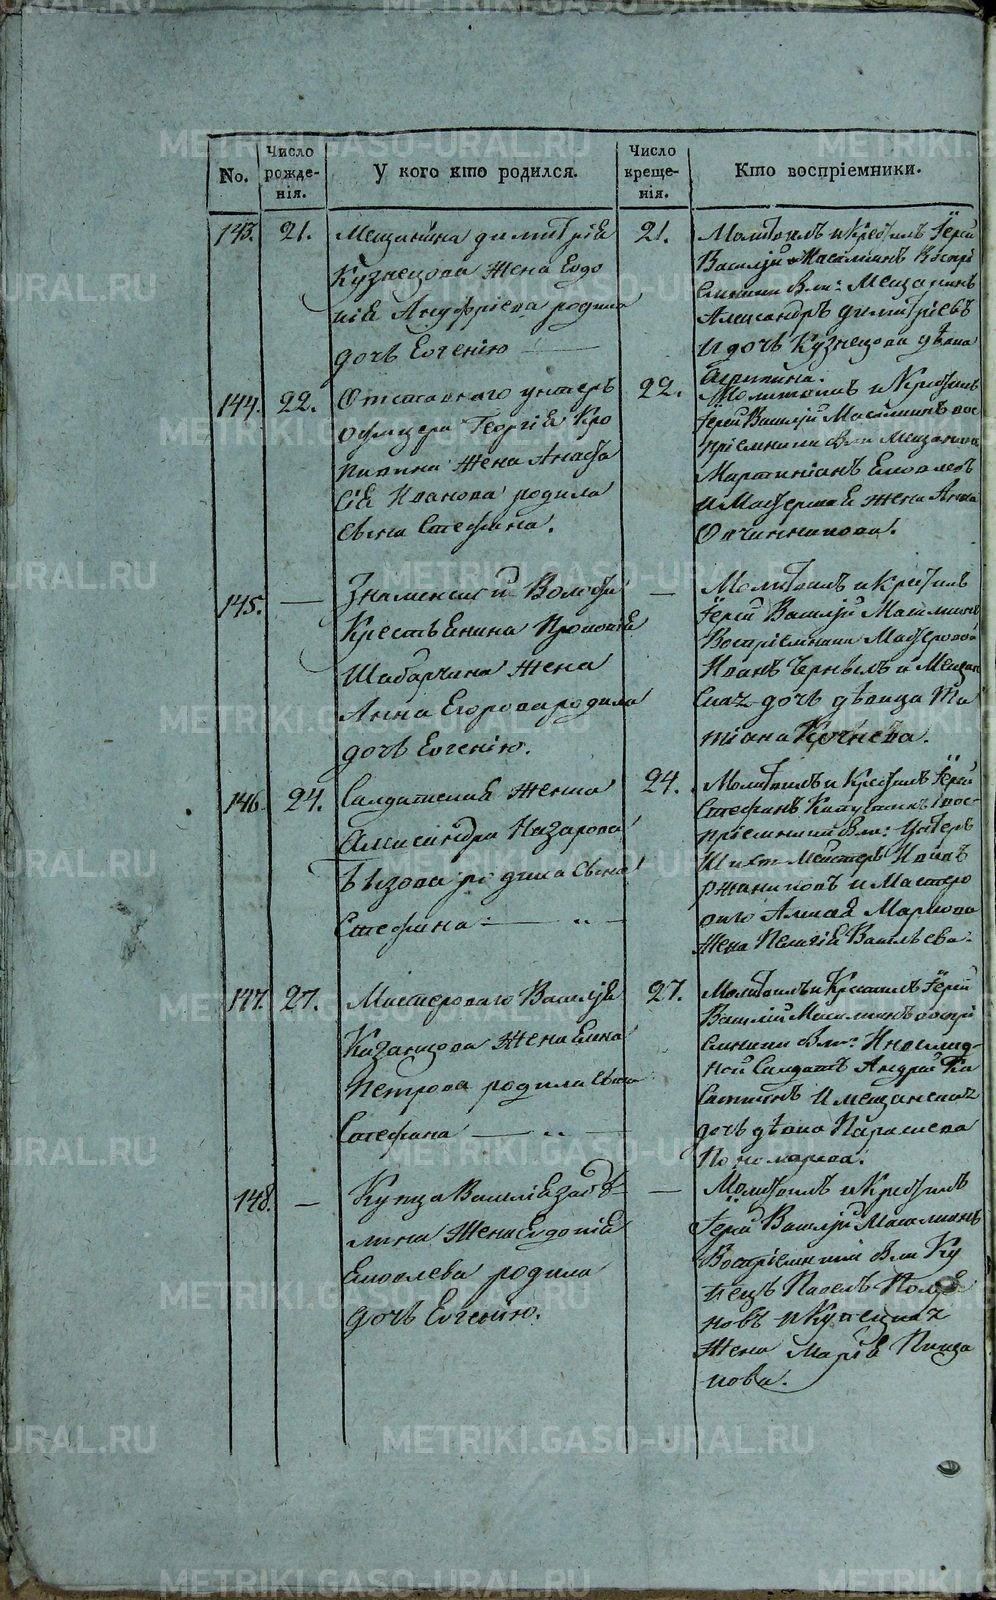 No.
Число рожде-нія.
У кого кто родился.
Число креще-нія.
Кто воспріемники.
143. 21.
Мещанина Димитрія
Кузнецова жена Евдо
кія Ануфріева родила
дочь Евгенію
21.
Молитвилъ и крестилъ Іерей
Василій Масалминъ воспрі
емники были: Мещанинъ
Александръ Димитріевъ
и дочь Кузнецова дѣвица
Агрипина.
144. 22.
Отставнаго унтеръ
офицера Георгія Кро
пивина жена Анаста
сія Иванова родила
сына Стефана.
22.
Молитвилъ и крестилъ
Іерей Василій Масалминъ вос
пріемники были Мещанинъ
Мартиніанъ Яковлевъ
и Мастерская жена Анна
Овчинникова.
145. —
Знаменской Волости
Крестьянина Прокопія
Шабарчина жена
Анна Егорова родила
дочь Евгенію.
—
Молитвилъ и крестилъ
Іерей Василій Масалминъ
Воспріемники Мастеровой
Иванъ Черныхъ и Мещан
скаz дочь дѣвица Та
тіана Кочнева.
146. 24.
Салдатская женка
Александра Назарова
Бызова родила сына
Стефана: — „ —
24.
Молитвилъ и крестилъ Іерей
Стефанъ Капустинъ вос-
пріемники были: Унтеръ
Шихтмейстеръ Иванъ
Ржанниковъ и Мастеро
ваго Алексѣя Маркова
жена Пелагія Васильева.
147. 27.
Мастероваго Василія
Казанцова жена Елена
Петрова родила сына
Стефана — „ —
27.
Молитвилъ и крестилъ Іерей
Василій Масалминъ воспрі
емники были: Инвалид-
ной Салдатъ Андрей Ка
и Мещанская
дочь дѣвица Параскева
Пономарева.
148. —
Купца Василія
жена Евдокія
Яковлева родила
дочь Евгенію.
—
Молитвилъ и крестилъ
Іерей Василій Масалминъ
Воспріемники были Ку
пецъ Павелъ
новъ и Купецкая
жена Марія
кова.
METRIKI.GASO-URAL.RU